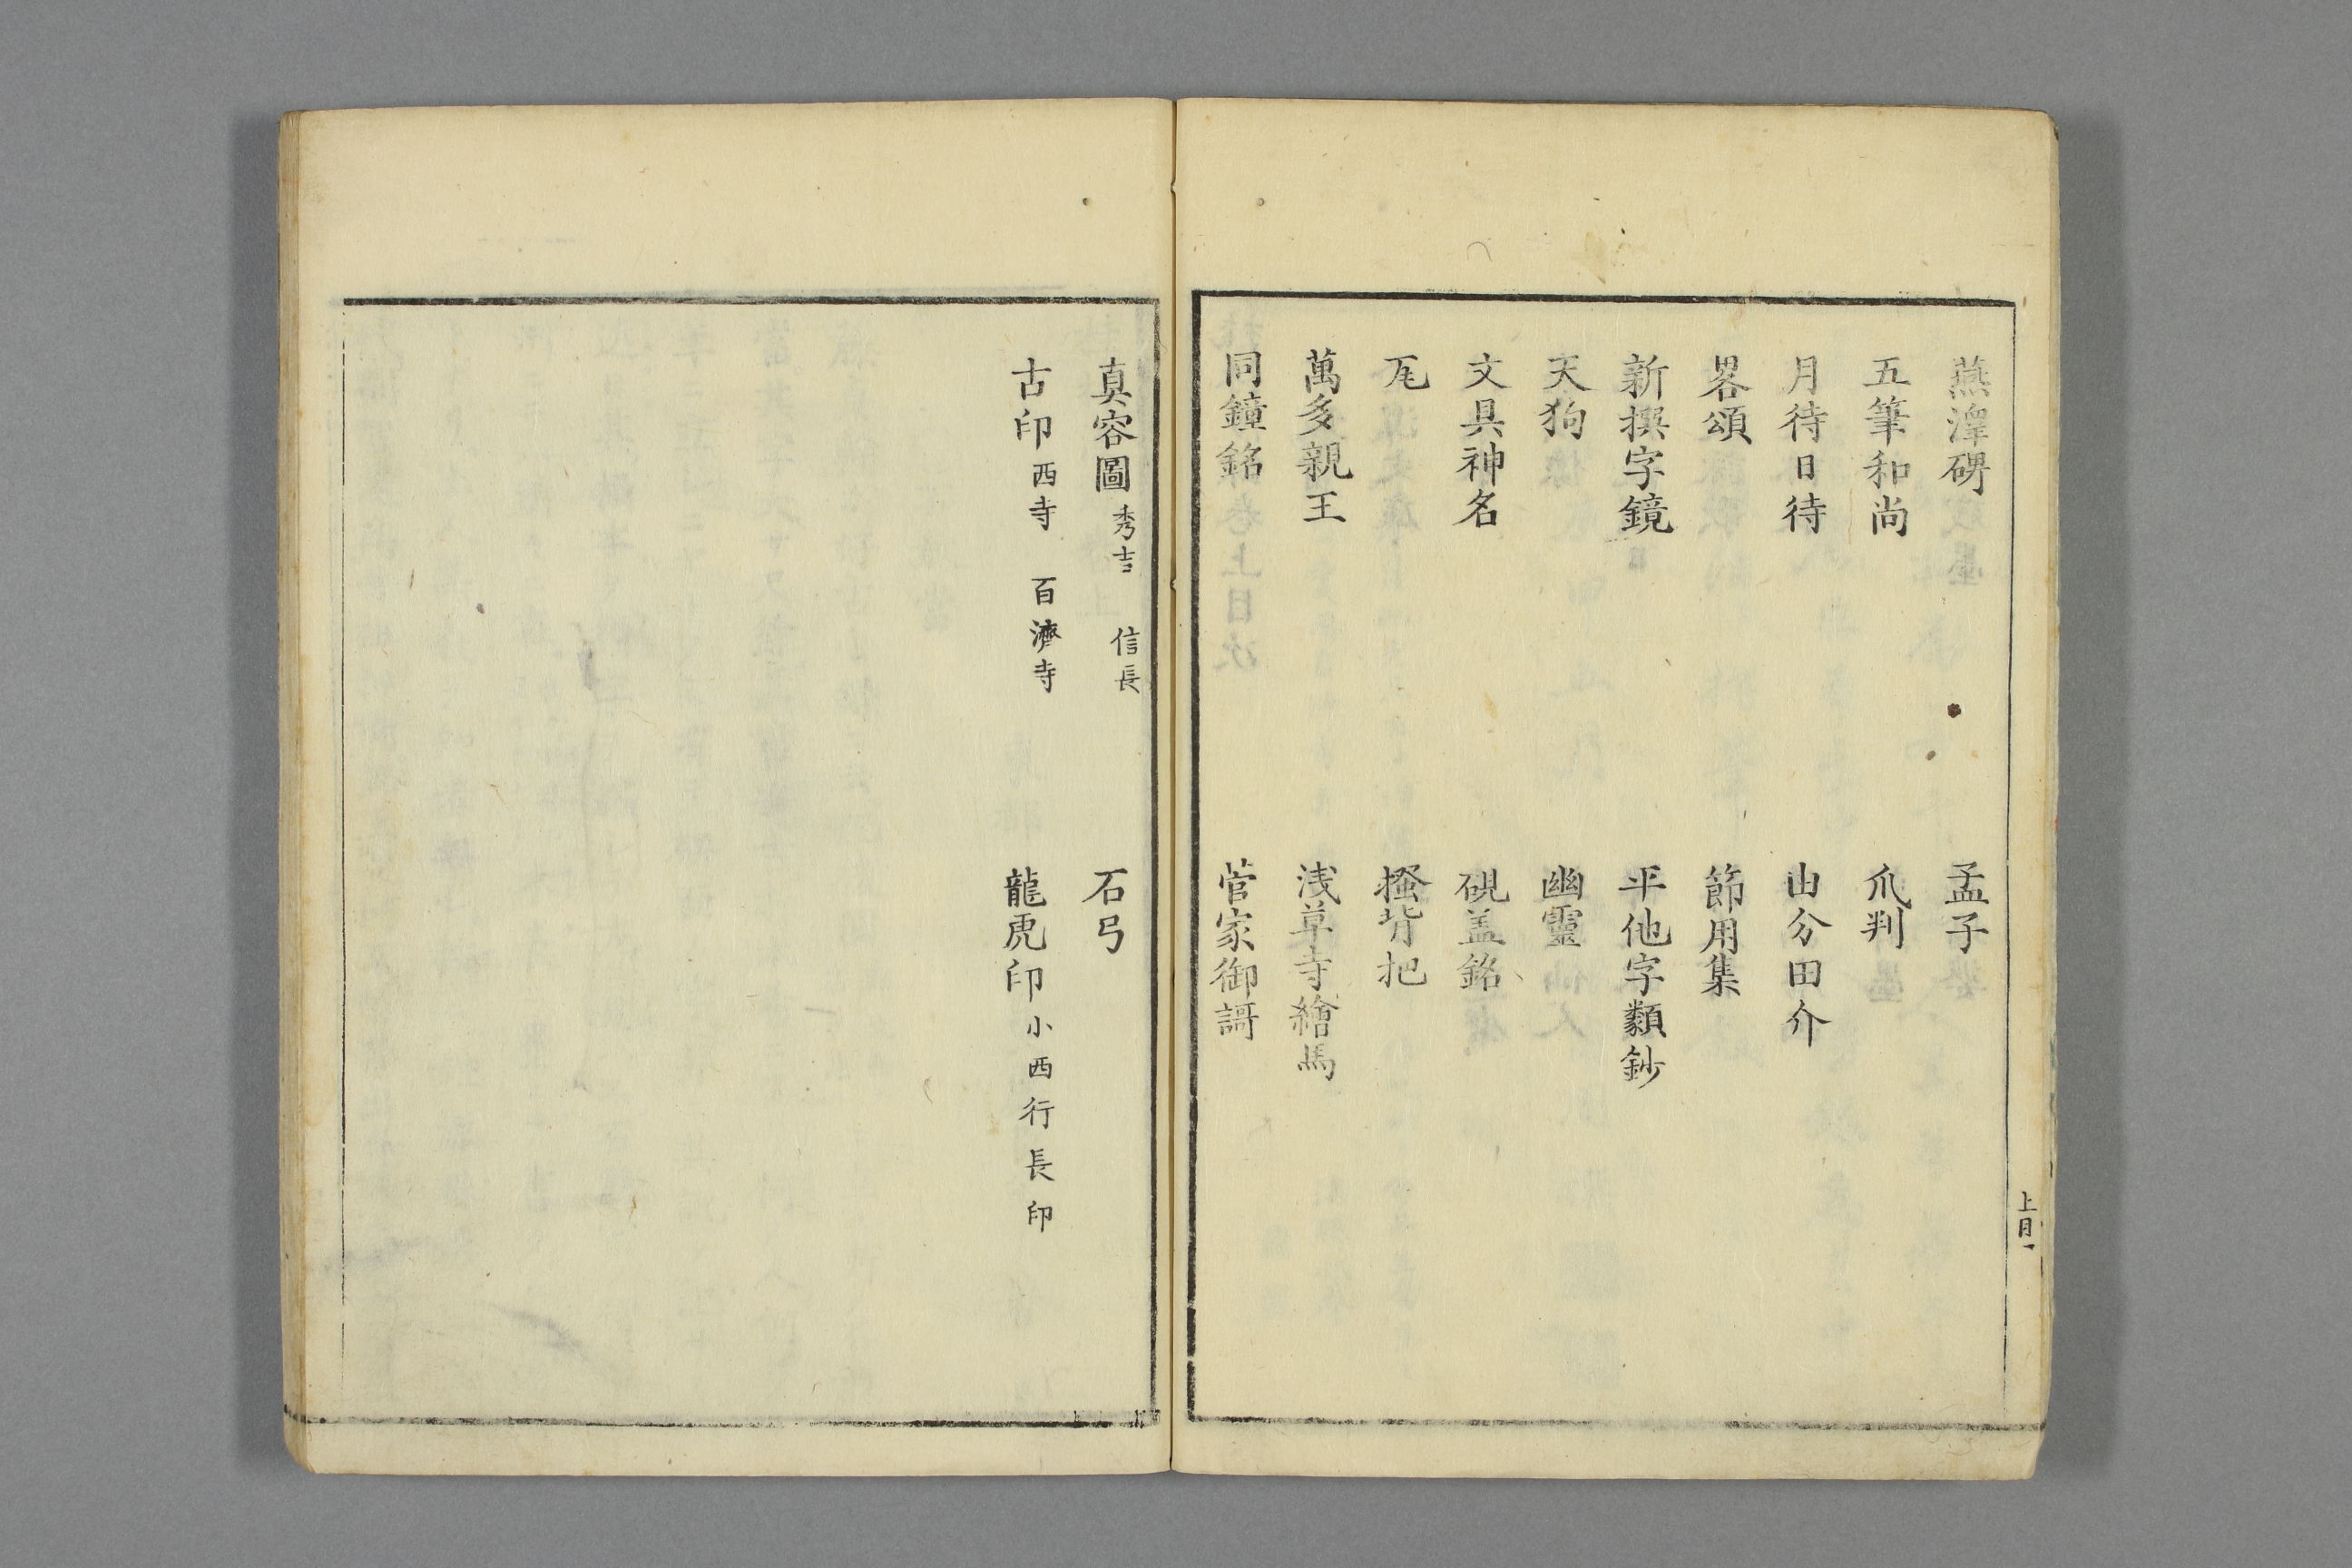 燕澤碑　孟子
五筆和尚　爪判
月待日待　由分田介
畧頌　節用集
新撰字鏡　平他字類鈔
天狗　幽靈
文具神名　硯盖銘
瓦　搔背把
萬多親王　浅草寺繪馬
同鐘銘　菅家御謌
上目一
真容圖 秀吉 信長　石弓
古印 西寺 百濟寺　龍虎印 小西行長印